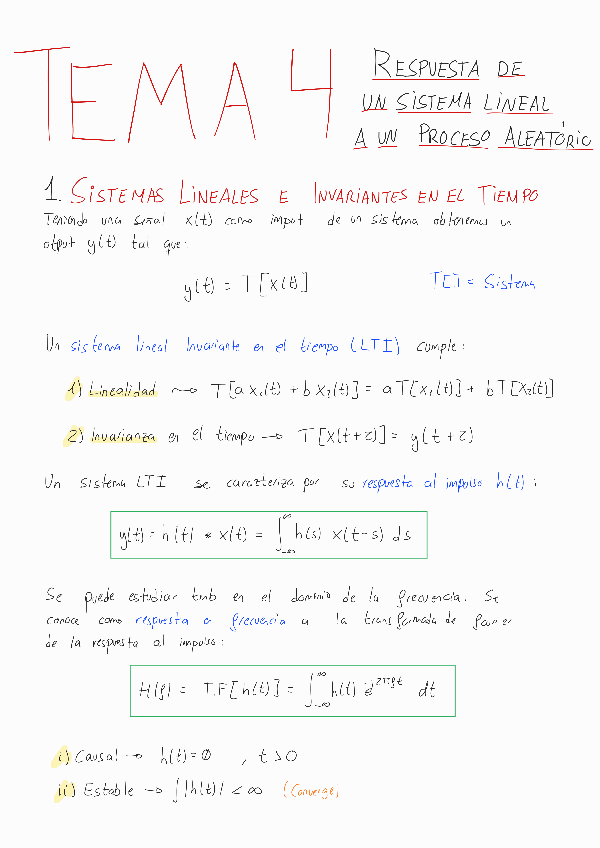 TEMA 4
RESPUESTA DE
UN SISTEMA LINEAL
A UN PROCESO ALEATÓRIO
1. SISTEMAS LINEALES E INVARIANTES EN EL TIEMPO
Teniendo una señal x(t) como imput de un sistema obtenemos un
otput y(t) tal que:
y(t) = T[x(t)]
T[] = Sistema
Un sistema lineal Invariante en el tiempo (LTI) cumple:
1) Linealidad ⟿ T[a x₁(t) + b x₂(t)] = a T[x₁(t)] + b T[x₂(t)]
2) Invarianza en el tiempo ⟿ T[x(t+z)] = y(t+z)
Un sistema LTI se caracteriza por su respuesta al impulso h(t):
y(t) = h(t) * x(t) = ∫_{-∞}^{∞} h(s) x(t-s) ds
Se puede estudiar tmb en el dominio de la frecuencia. Se
conoce como respuesta a frecuencia a la transformada de
de la respuesta al impulso:
H(f) = T.F[h(t)] = ∫_{-∞}^{∞} h(t) e^{2πft} dt
i) Causal → h(t) = 0 , t > 0
ii) Estable ⟿ ∫|h(t)| < ∞ (Converge)